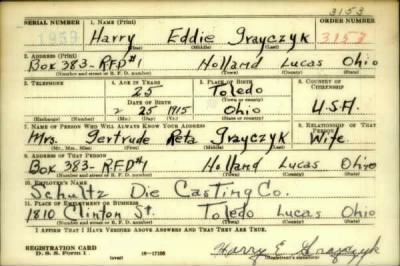 3153
SERIAL NUMBER 1. NAME (Print) ORDER NUMBER
1959 Harry Eddie Grayczyk 3153
(First) (Middle) (Last)
2. ADDRESS (Print)
Box 383-RFD#1 Holland Lucas Ohio
(Number and street or R. F. D. number) (Town) (County) (State)
3. TELEPHONE 4. AGE IN YEARS 5. PLACE OF BIRTH 6. COUNTRY OF CITIZENSHIP
25 Toledo
DATE OF BIRTH (Town or county)
2 25 1915 Ohio U.S.A.
(Exchange) (No.) (Mo.) (Day) (Yr.) (State or country)
7. NAME OF PERSON WHO WILL ALWAYS KNOW YOUR ADDRESS 8. RELATIONSHIP OF THAT PERSON
Mrs. Gertrude Reta Grayczyk Wife
(Mr., Mrs., Miss) (First) (Middle) (Last)
9. ADDRESS OF THAT PERSON
Box 383-RFD#1 Holland Lucas Ohio
(Number and street or R. F. D. number) (Town) (County) (State)
10. EMPLOYER'S NAME
Schultz Die Casting Co.
11. PLACE OF EMPLOYMENT OR BUSINESS
1810 Clinton St. Toledo Lucas Ohio
(Number and street or R. F. D. number) (Town) (County) (State)
I AFFIRM THAT I HAVE VERIFIED ABOVE ANSWERS AND THAT THEY ARE TRUE.
REGISTRATION CARD
D. S. S. Form 1 (over) 16-17105 Harry E. Grayczyk